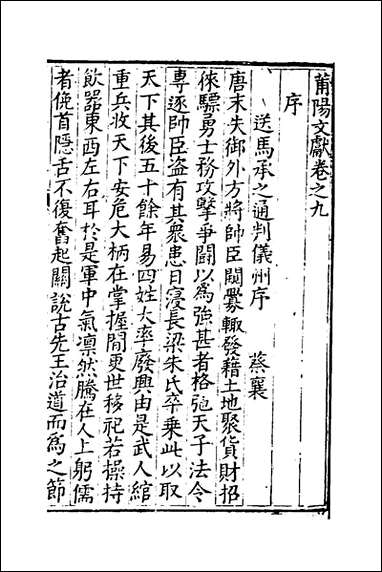 莆陽文獻卷之九
序
送馬承之通判儀州序 蔡襄
唐末失御外方將帥臣闚釁輙發藉土地聚貨財招
徠驃勇士務攻擊爭鬪以爲強甚者格弛天子法令
專逐帥臣盜有其衆患日寖長梁朱氏卒乗此以取
天下其後五十餘年易四姓大率廢興由是武人綰
重兵收天下安危大柄在掌握間更世移祀若操持
飲器東西左右耳於是軍中氣凛然騰在人上躬儒
者俛首隱舌不復奮起關說古先王治道而爲之節